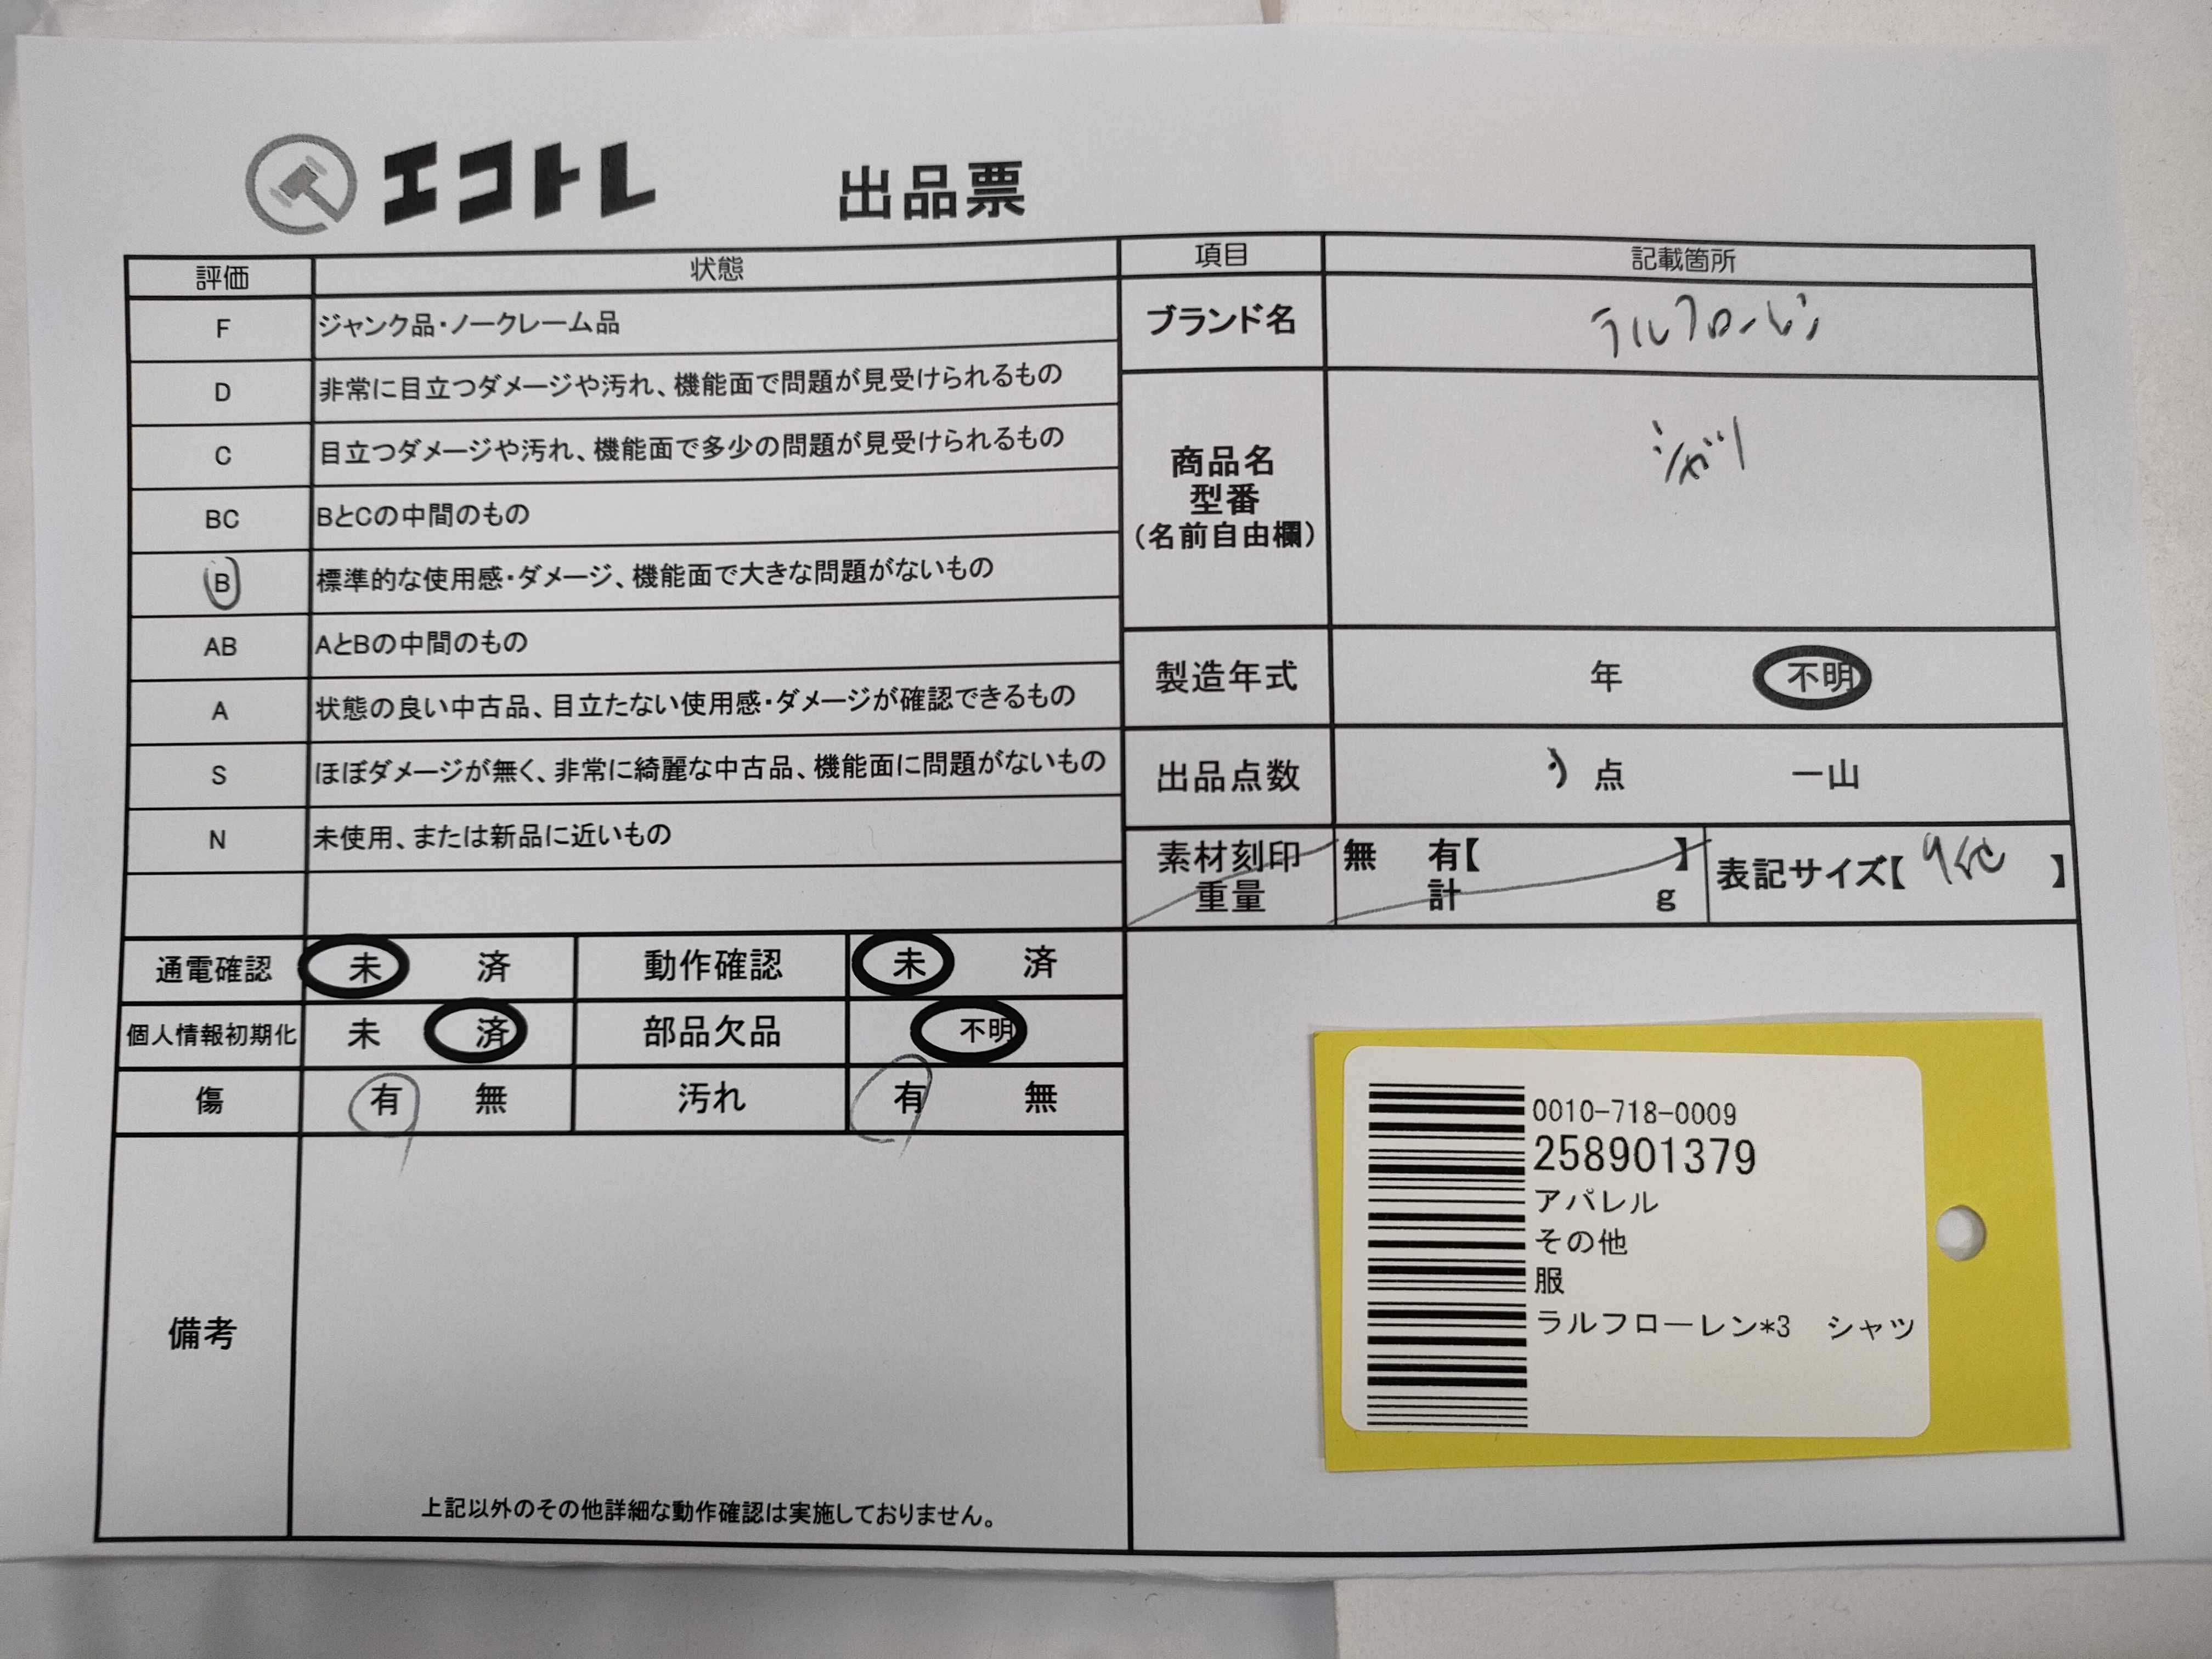 エコトレ 出品票
評価 状態
F ジャンク品・ノークレーム品
D 非常に目立つダメージや汚れ、機能面で問題が見受けられるもの
C 目立つダメージや汚れ、機能面で多少の問題が見受けられるもの
BC BとCの中間のもの
B 標準的な使用感・ダメージ、機能面で大きな問題がないもの
AB AとBの中間のもの
A 状態の良い中古品、目立たない使用感・ダメージが確認できるもの
S ほぼダメージが無く、非常に綺麗な中古品、機能面に問題がないもの
N 未使用、または新品に近いもの
項目 記載箇所
ブランド名 ラルフローレン
商品名
型番
(名前自由欄)
シャツ
製造年式 年 不明
出品点数 3 点 一山
素材刻印
重量
無 有【 】
計 g
表記サイズ【 】
通電確認 未 済 動作確認 未 済
個人情報初期化 未 済 部品欠品 不明
傷 有 無 汚れ 有 無
備考
上記以外のその他詳細な動作確認は実施しておりません。
0010-718-0009
258901379
アパレル
その他
服
ラルフローレン*3 シャツ